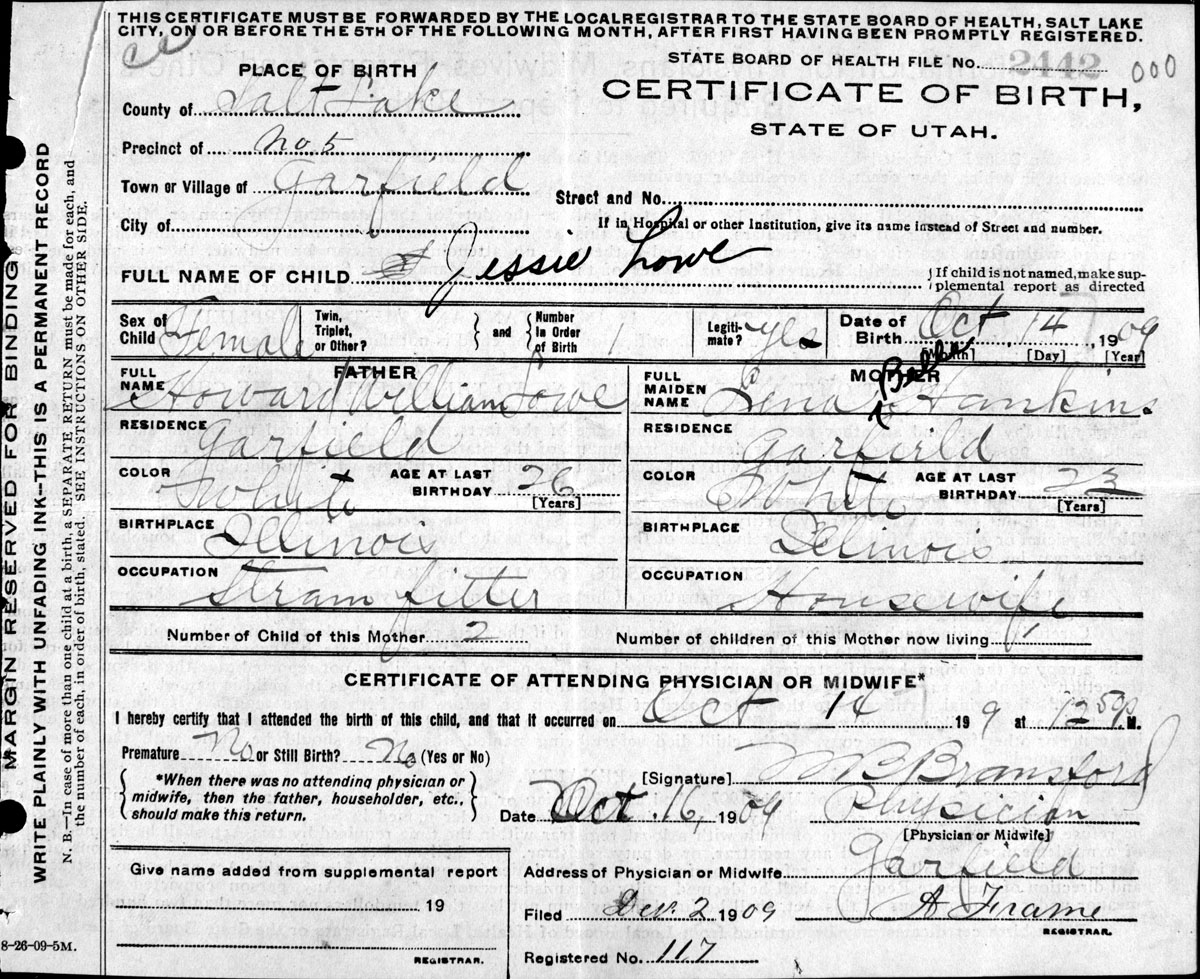 THIS CERTIFICATE MUST BE FORWARDED BY THE LOCAL REGISTRAR TO THE STATE BOARD OF HEALTH, SALT LAKE
CITY, ON OR BEFORE THE 5TH OF THE FOLLOWING MONTH, AFTER FIRST HAVING BEEN PROMPTLY REGISTERED.
STATE BOARD OF HEALTH FILE No. 2442 000
PLACE OF BIRTH
CERTIFICATE OF BIRTH,
STATE OF UTAH.
County of Salt Lake
Precinct of No. 5
Town or Village of Garfield
Street and No.
City of
If in Hospital or other Institution, give its name instead of Street and number.
FULL NAME OF CHILD Jessie Lowe
If child is not named, make supplemental report as directed
Sex of Child Female
Twin, Triplet, or Other? and Number in Order of Birth 1
Legitimate? yes
Date of Birth Oct 14, 1909
[Month] [Day] [Year]
FATHER
FULL NAME Howard William Lowe
RESIDENCE Garfield
COLOR White AGE AT LAST BIRTHDAY 26 [Years]
BIRTHPLACE Illinois
OCCUPATION Steam fitter
MOTHER
FULL MAIDEN NAME Lena Belle Hankins
RESIDENCE Garfield
COLOR White AGE AT LAST BIRTHDAY 23 [Years]
BIRTHPLACE Illinois
OCCUPATION Housewife
Number of Child of this Mother 2 Number of children of this Mother now living 1
CERTIFICATE OF ATTENDING PHYSICIAN OR MIDWIFE*
I hereby certify that I attended the birth of this child, and that it occurred on Oct 14 199 at 12 50 P M.
Premature No or Still Birth? No (Yes or No)
*When there was no attending physician or
midwife, then the father, householder, etc.,
should make this return.
[Signature] Bransford
Date Oct. 16, 1909 Physician
[Physician or Midwife]
Give name added from supplemental report
19
REGISTRAR.
Address of Physician or Midwife Garfield
Filed Dec. 2 1909 A Frame
REGISTRAR.
Registered No. 117
8-26-09-5M.
MARGIN RESERVED FOR BINDING
WRITE PLAINLY WITH UNFADING INK--THIS IS A PERMANENT RECORD
N. B.—In case of more than one child at a birth, a SEPARATE RETURN must be made for each, and
the number of each, in order of birth, stated. SEE INSTRUCTIONS ON OTHER SIDE.